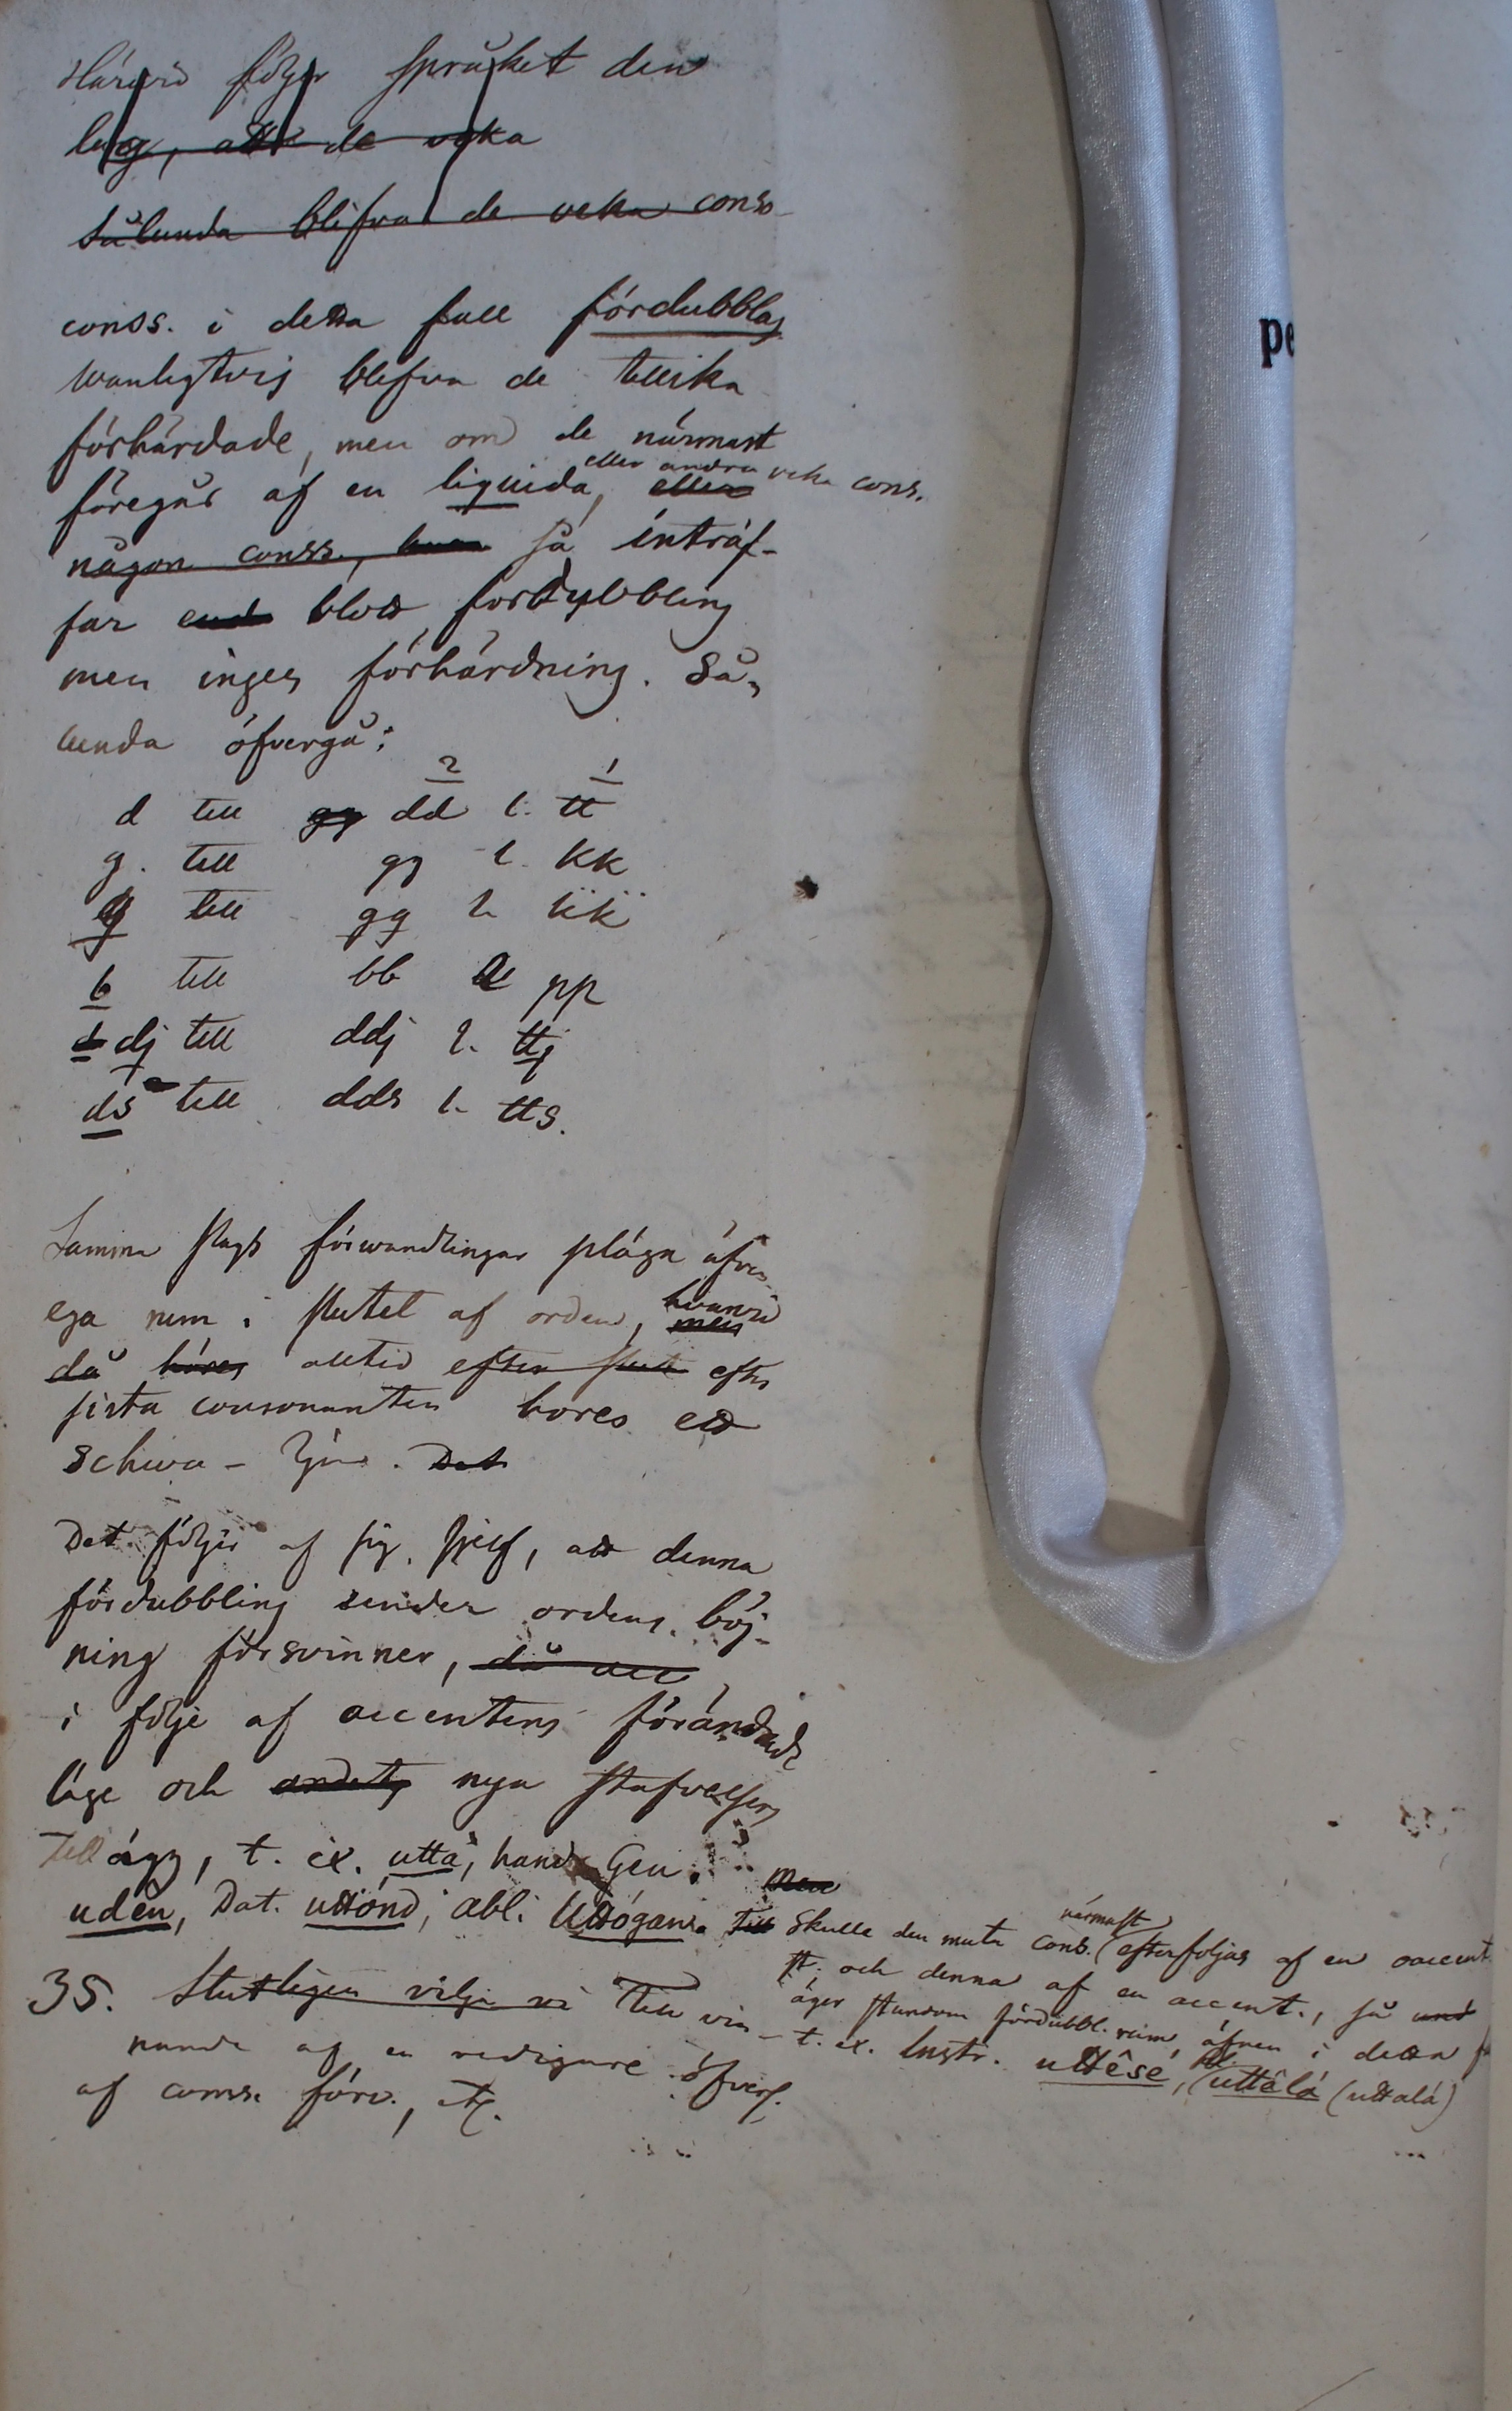 Härvid följer språket den
lag, att de veka
Sålunda blifva de veka conso-
conss. i detta fall fördubblas
wanligtvis blifva de tillika
förhärdade, men om de närmast
föregås af en liquida, eller eller andra veka cons.
någon conss., så inträf-
far blott fördubbling
men ingen förhärdning. Så-
lunda öfvergå:
2 1
d till gg dd l. tt
g. till gg l. kk
g till gg l. kk
b till bb l. pp
d dj till ddj l. ttj
ds till dds l. tts.
Samma slags förwandlingar pläga äfven
ega rum i slutet af orden, men hvarvid
då höres alltid efter slut efter
sista consonanten höres ett
Schwa - ljud. Det
Det följer af sig sjelf, att denna
fördubbling under ordens böj-
ning försvinner, då acc
i följe af accentens förändrade
läge och nya stafvelsers
tillägg, t. ex. utta, hand Gen.
uden, Dat. uttónd, abl. uttógans. Till
Men
Skulle den muta cons. närmast efterföljas af en oaccent.
st. och denna af en accent., så
äger stundom fördubbl. rum, äfven i detta
t. ex. Instr. uttêsé, uttêlá (uttalá)
35. Slutligen vilja vi Till vin-
nande af en redigare öfvers.
af conss. förv., etc.